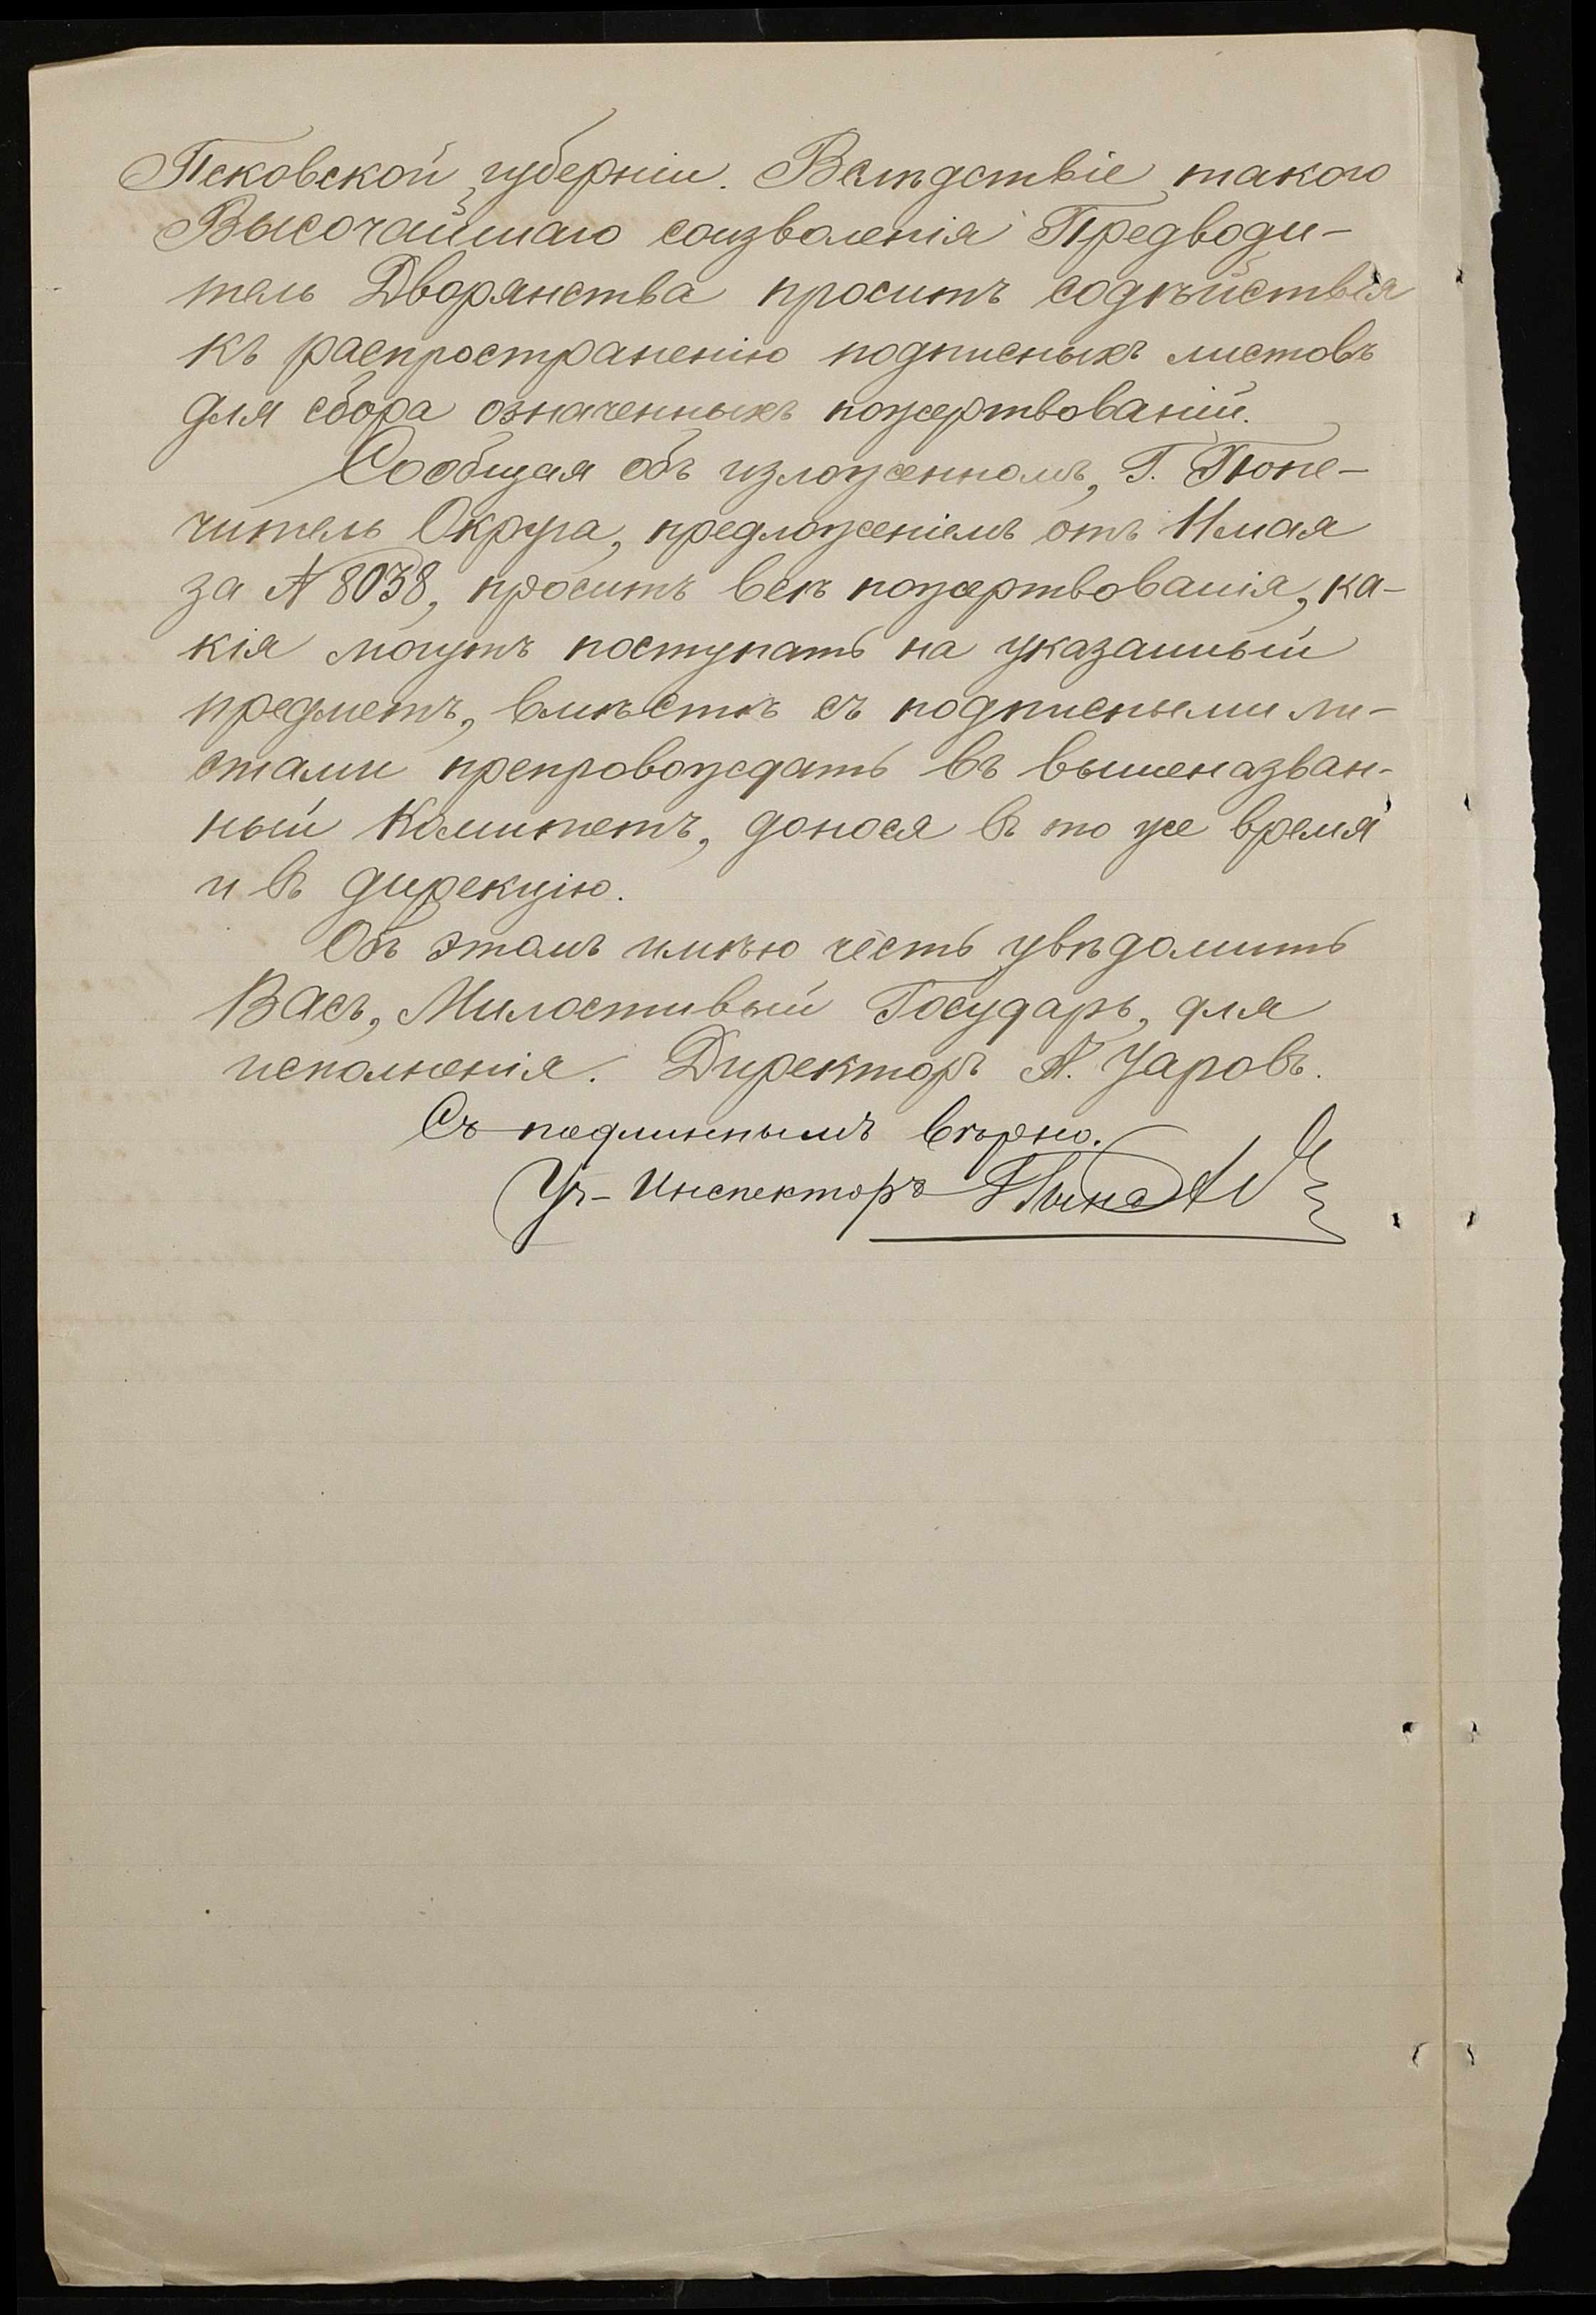 Псковской губерніи. Вслѣдствіе такого
Высочайшаго соизволенія Предводи-
тель Дворянства проситъ содѣйствія
къ распространенію подписныхъ листовъ
для сбора означенныхъ пожертвованій.
Сообщая объ изложенномъ, Г. Попе-
читель Округа, предложеніемъ отъ 11 мая
за № 8038, проситъ всѣ пожертвованія, ка-
кія могутъ поступать на указанный
предметъ, вмѣстѣ съ подписными ли-
стами препровождать въ вышеназван-
ный Комитетъ, донося въ то же время
и въ дирекцію.
Объ этомъ имѣю честь увѣдомить
Васъ, Милостивый Государь, для
исполненія. Директоръ А. Уаровъ.
Съ подлиннымъ вѣрно.
Уч-Инспекторъ